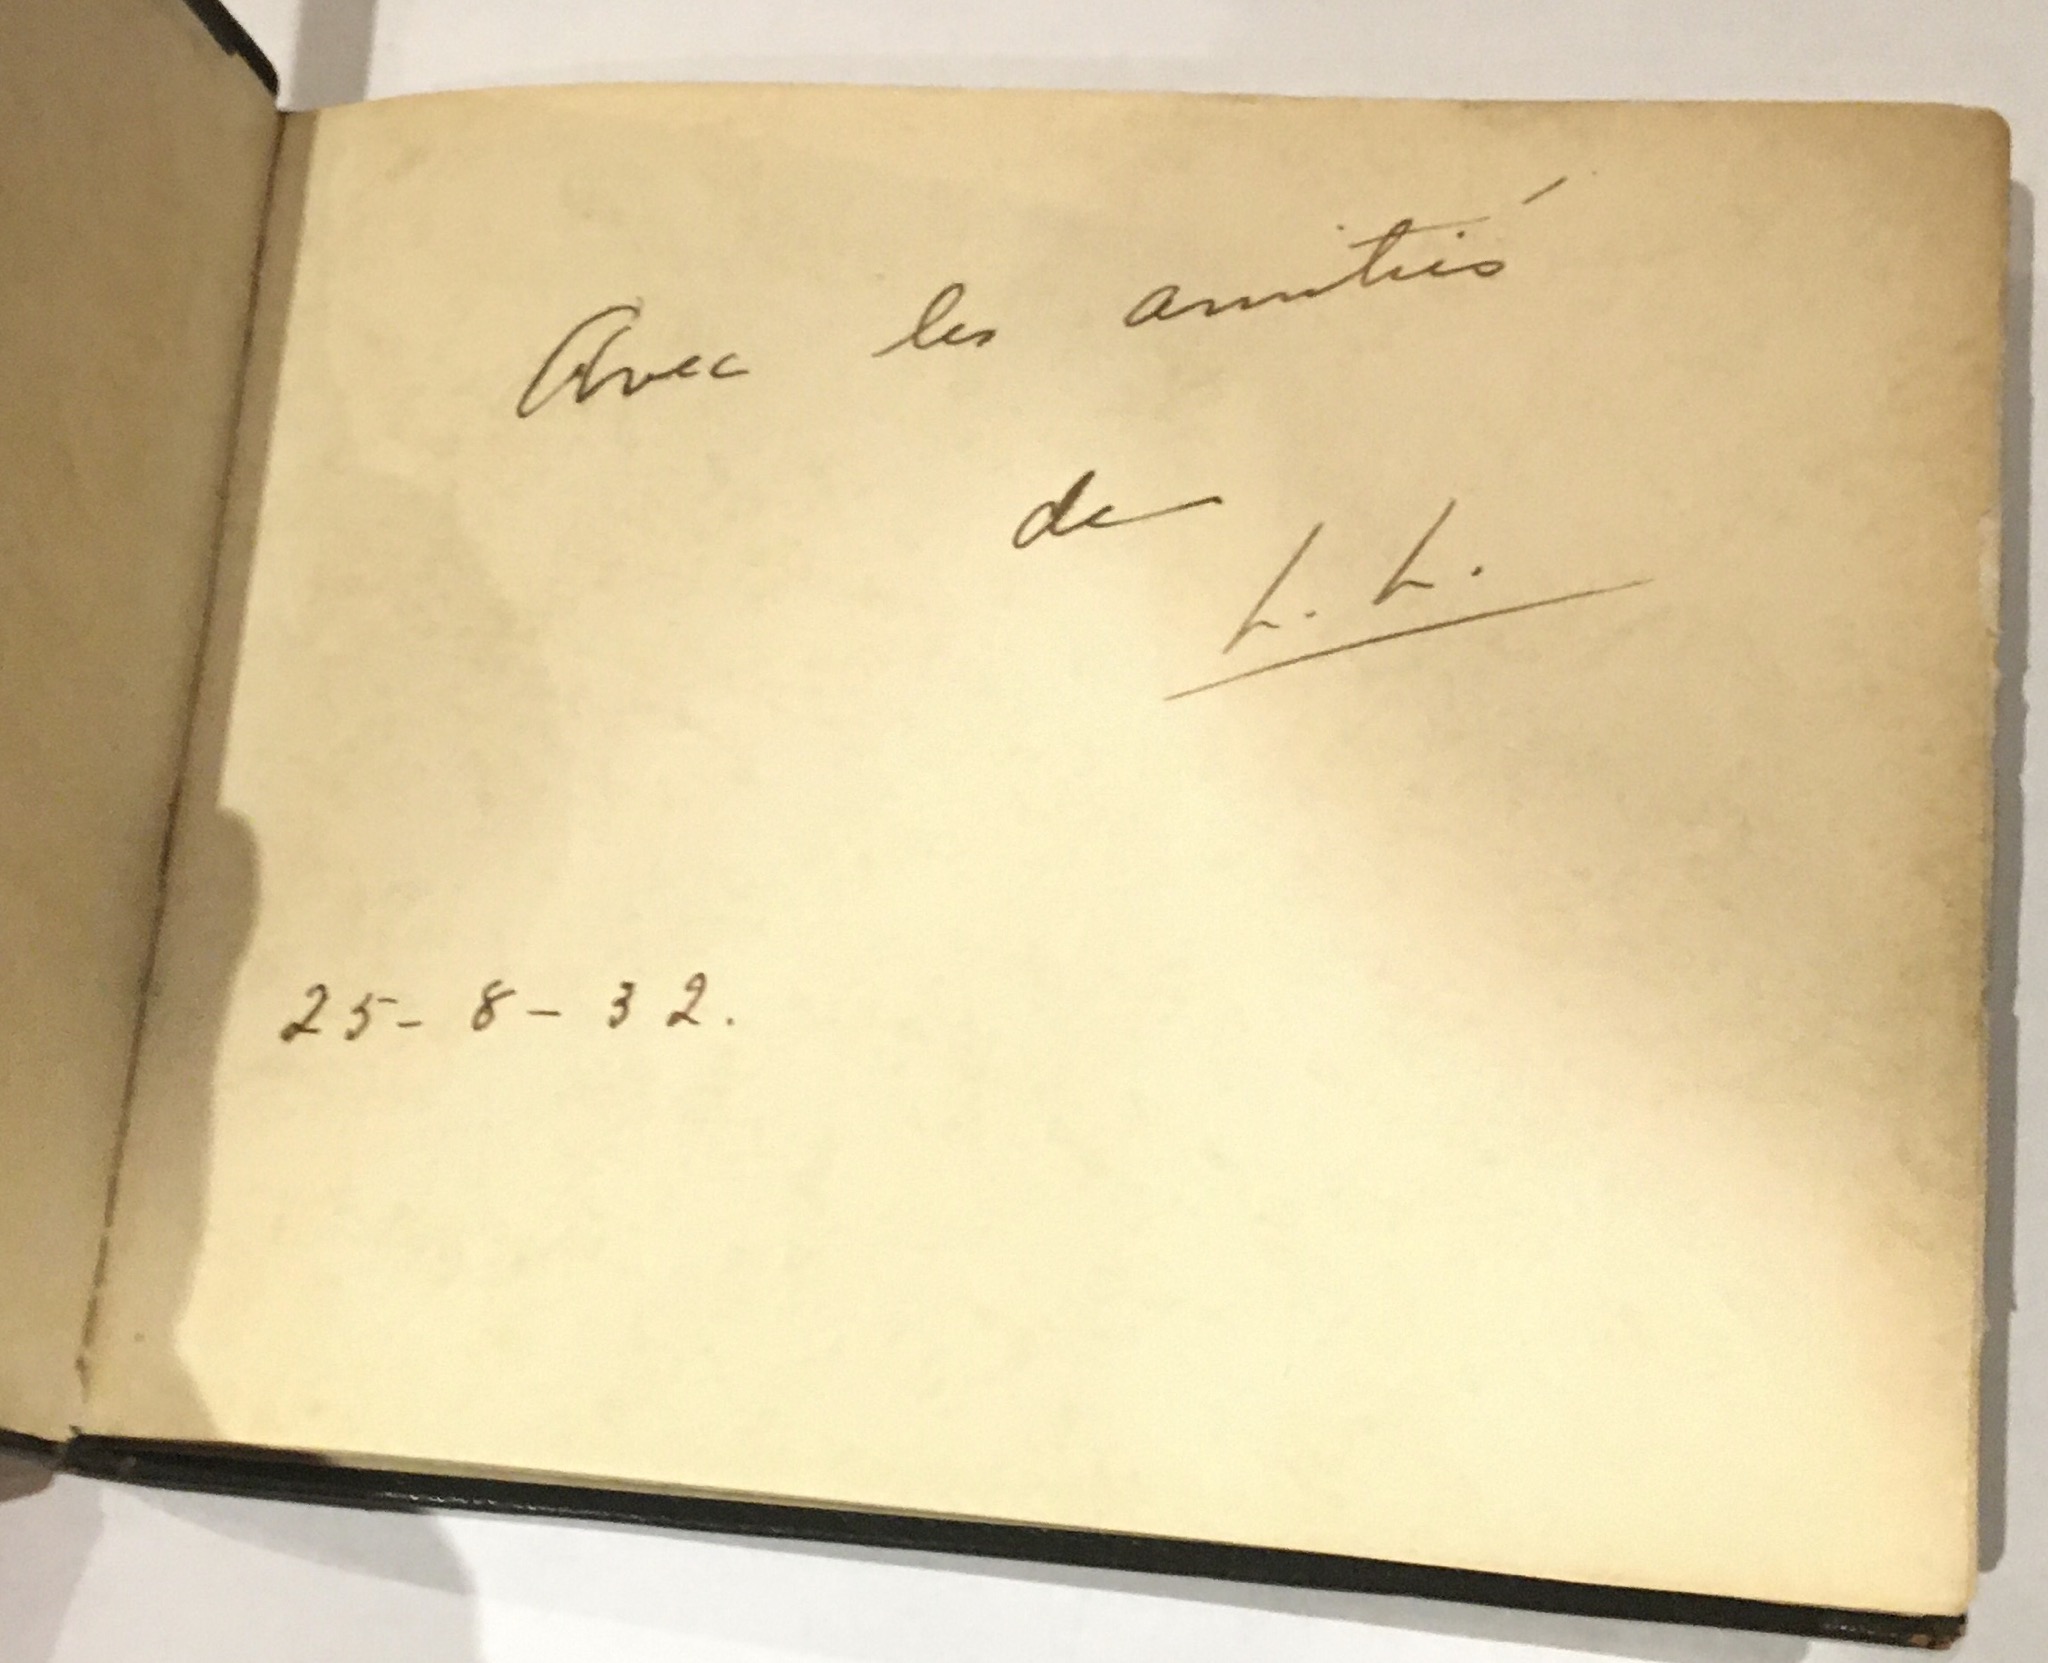 Avec les amitiés
de
L. L.
25-8-32.